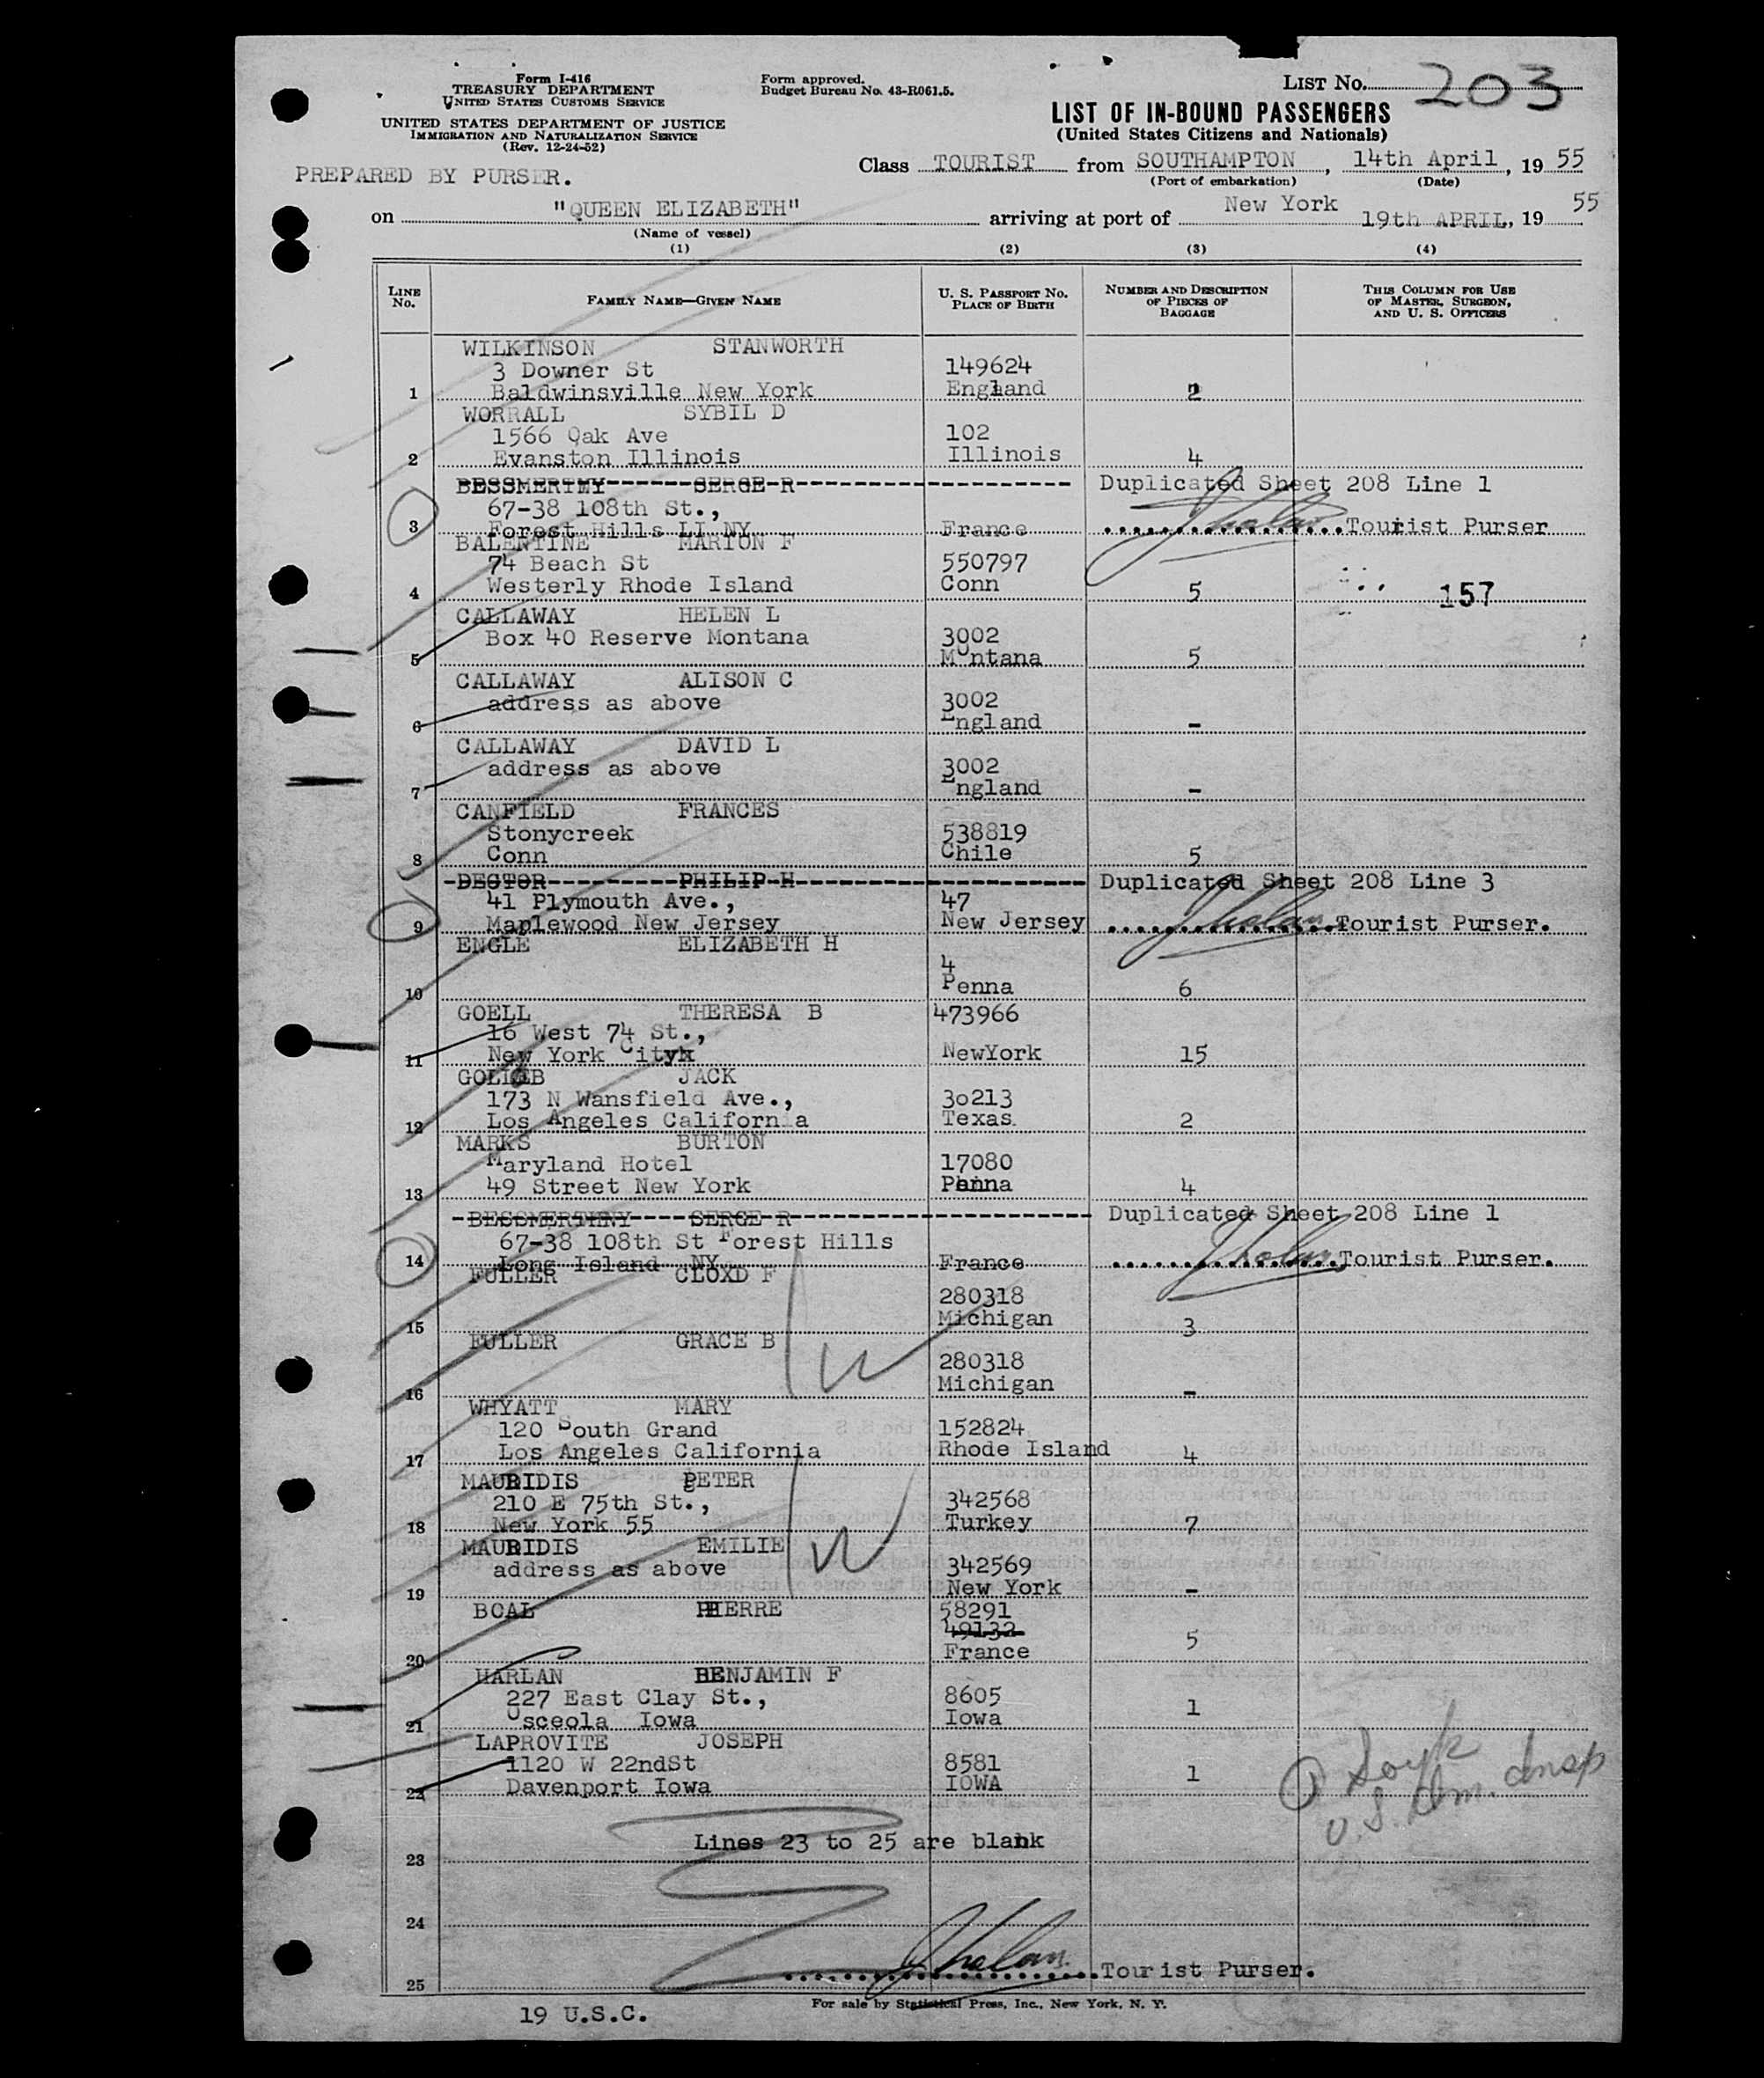 Form I-416
TREASURY DEPARTMENT
UNITED STATES CUSTOMS SERVICE
UNITED STATES DEPARTMENT OF JUSTICE
IMMIGRATION AND NATURALIZATION SERVICE
(Rev. 12-24-52)
Form approved.
Budget Bureau No. 43-R061.5.
LIST No. 203
LIST OF IN-BOUND PASSENGERS
(United States Citizens and Nationals)
PREPARED BY PURSER.
Class TOURIST from SOUTHAMPTON, 14th April, 19 55
(Port of embarkation) (Date)
on "QUEEN ELIZABETH" arriving at port of New York 19th APRIL, 19 55
(Name of vessel)
(1) (2) (3) (4)
LINE No. FAMILY NAME—GIVEN NAME U. S. PASSPORT No. PLACE OF BIRTH NUMBER AND DESCRIPTION OF PIECES OF BAGGAGE THIS COLUMN FOR USE OF MASTER, SURGEON, AND U. S. OFFICERS
WILKINSON STANWORTH
3 Downer St 149624
1 Baldwinsville New York England 2
WORRALL SYBIL D
1566 Oak Ave 102
2 Evanston Illinois Illinois 4
BESSMERTNY SERGE R Duplicated Sheet 208 Line 1
67-38 108th St.,
3 Forest Hills LI NY France Tourist Purser
BALENTINE MARION F
74 Beach St 550797
4 Westerly Rhode Island Conn 5 157
CALLAWAY HELEN L
Box 40 Reserve Montana 3002
5 Montana 5
CALLAWAY ALISON C
address as above 3002
6 England -
CALLAWAY DAVID L
address as above 3002
7 England -
CANFIELD FRANCES
Stonycreek 538819
8 Conn Chile 5
DECTOR PHILIP H Duplicated Sheet 208 Line 3
41 Plymouth Ave., 47
9 Maplewood New Jersey New Jersey Tourist Purser.
ENGLE ELIZABETH H
4
10 Penna 6
GOELL THERESA B 473966
16 West 74 St.,
11 New York City NewYork 15
JACK
173 N Wansfield Ave., 30213
12 Los Angeles California Texas 2
MARKS BURTON
Maryland Hotel 17080
13 49 Street New York Penna 4
BESSMERTHNY SERGE R Duplicated Sheet 208 Line 1
67-38 108th St Forest Hills
14 Long Island NY France Tourist Purser.
FULLER CLOXD F
280318
15 Michigan 3
FULLER GRACE B
280318
16 Michigan -
WHYATT MARY
120 South Grand 152824
17 Los Angeles California Rhode Island 4
MAURIDIS PETER
210 E 75th St., 342568
18 New York 55 Turkey 7
MAURIDIS EMILIE
address as above 342569
19 New York -
BOAL PIERRE 58291
49132
20 France 5
HARLAN BENJAMIN F
227 East Clay St., 8605
21 Osceola Iowa Iowa 1
LAPROVITE JOSEPH
1120 W 22ndSt 8581
22 Davenport Iowa IOWA 1
U.S. Imm. Insp
Lines 23 to 25 are blank
23
24
25 Tourist Purser.
For sale by Statistical Press, Inc., New York, N. Y.
19 U.S.C.